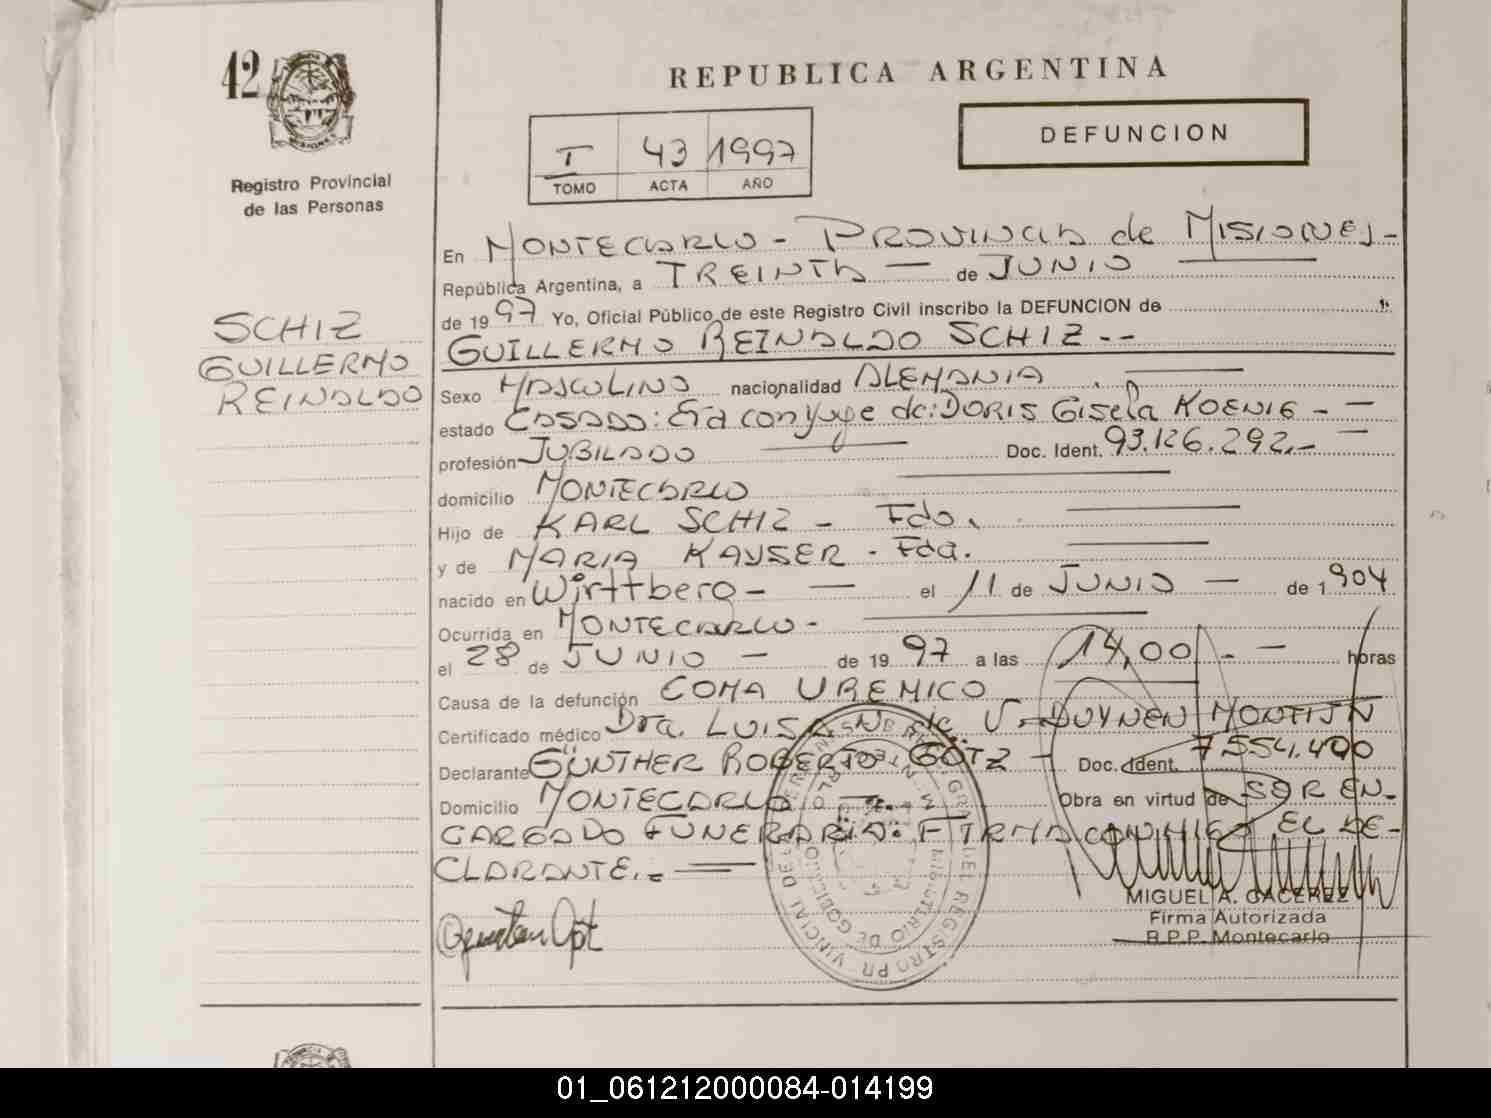 42
Registro Provincial
de las Personas
SCHIZ
GUILLERMO
REINALDO
REPUBLICA ARGENTINA
I 43 1997
TOMO ACTA AÑO
DEFUNCION
En MONTECARLO - PROVINCIA de MISIONES -
República Argentina, a TREINTA — de JUNIO
de 1997 Yo, Oficial Público de este Registro Civil inscribo la DEFUNCION de
GUILLERMO REINALDO SCHIZ --
Sexo MASCULINO nacionalidad ALEMANIA
estado CASADO: Era conyuge de: DORIS Gisela KOENIG - —
profesión JUBILADO — Doc. Ident. 93.126.292.- —
domicilio MONTECARLO
Hijo de KARL SCHIZ - Fdo.
y de MARIA KAYSER - Fda.
nacido en Wirttberg - — el 11 de JUNIO — de 1904
Ocurrida en MONTECARLO -
el 28 de JUNIO — de 1997 a las 14,00 - — horas
Causa de la defunción COMA UREMICO
Certificado médico Dra. LUISA N. de V. DUYNEN MONTIJN
Declarante GÜNTHER ROBERTO GÖTZ — Doc. Ident. 7.554.400
Domicilio MONTECARLO. — Obra en virtud de SER EN-
CARGADO FUNERARIA: FIRMA CONMIGO EL DE-
CLARANTE.- —
MIGUEL A. CACEREZ
Firma Autorizada
R.P.P. Montecarlo
01_061212000084-014199